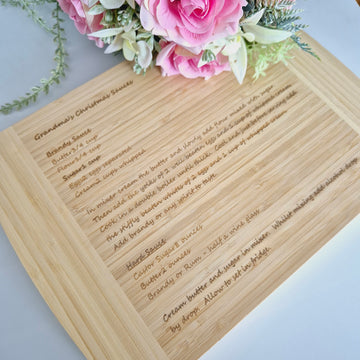 Grandma's Christmas Sauces
Brandy Sauce
Butter3/4 cup
Flour3/4 cup
Sugar1 cup
Eggs2 egg seperated
Cream2 cups whipped
In mixer cream the butter and slowly add flour mixed with sugar
Then add the yolks of 2 well beaten eggs and 1 cup of whipped cream
Cook in a double boiler until thick. Cool and just before serving add
the stiffly beaten whites of 2 eggs and 1 cup of whipped cream
Add brandy or any spirit to taste
Hard Sauce
Castor Sugar8 ounces
Butter2 ounces
Brandy or Rum - half a wine glass
Cream butter and sugar in mixer. Whilst mixing add alcohol drop
by drop. Allow to set in fridge.